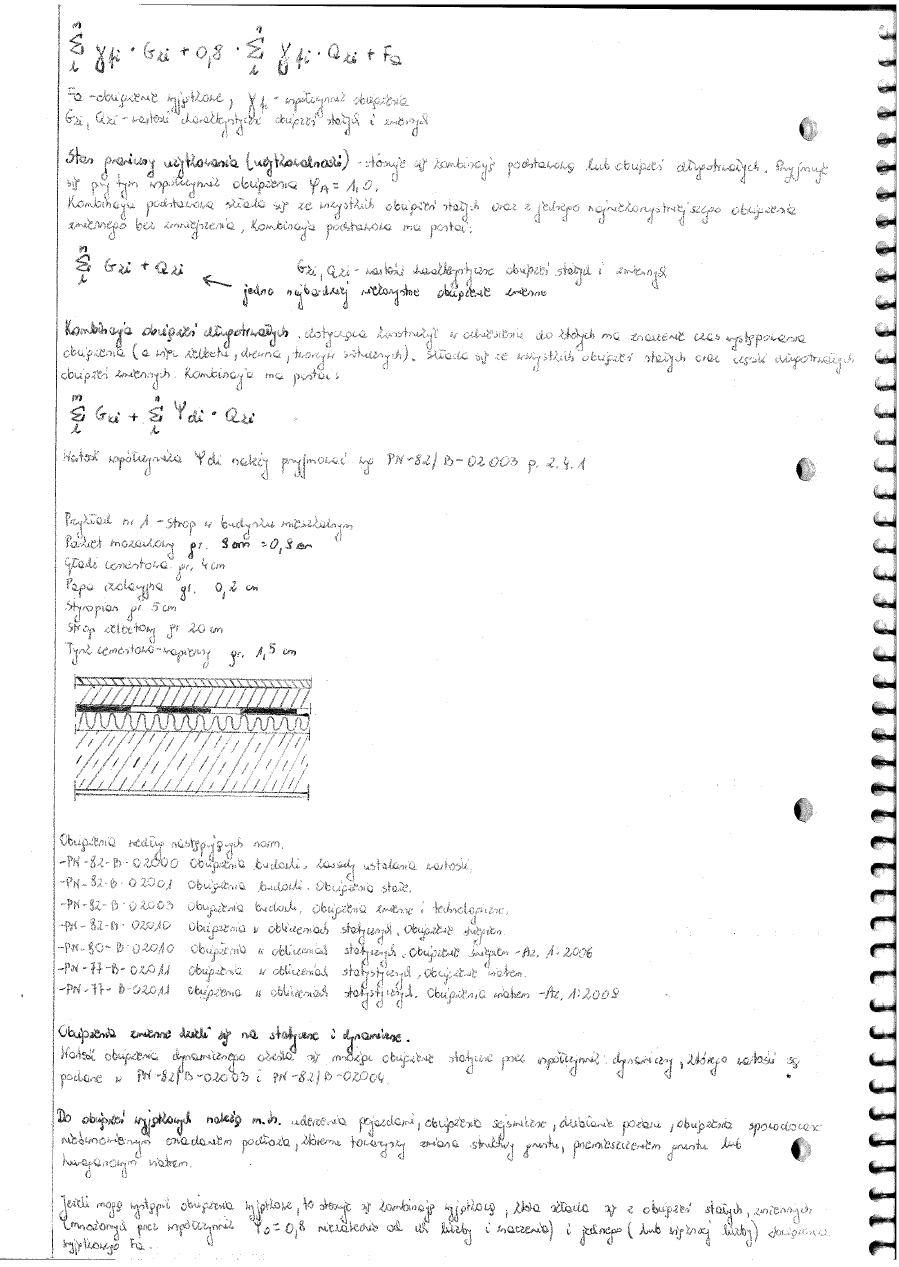 m Σ i γfi · Gki + 0,8 · n Σ i γfi · Qki + Fa
Fa - obciążenie wyjątkowe, γfi - współczynnik obciążenia
Gki, Qki - wartości charakterystyczne obciążeń stałych i zmiennych
Stan graniczny użytkowania (użytkowalności) - stosuje się kombinację podstawową lub obciążeń długotrwałych. Przyjmuje
się przy tym współczynnik obciążenia = 1,0.
Kombinacja podstawowa składa się ze wszystkich obciążeń stałych oraz z jednego najniekorzystniejszego obciążenia
zmiennego bez zmniejszenia, kombinacja podstawowa ma postać:
m Σ i Gki + Qki
Gki, Qki - wartości charakterystyczne obciążeń stałych i zmiennych
jedno najbardziej niekorzystne obciążenie zmienne
Kombinacja obciążeń długotrwałych, dotycząca konstrukcji w odniesieniu do których ma znaczenie czas występowania
obciążenia (a więc żelbetu, drewna, tworzyw sztucznych). Składa się ze wszystkich obciążeń stałych oraz części długotrwałych
obciążeń zmiennych. Kombinacja ma postać:
m Σ i Gki + n Σ i Ψdi · Qki
Wartość współczynnika Ψdi należy przyjmować wg PN-82/B-02003 p. 2.4.1
Przykład nr 1 - strop w budynku mieszkalnym
Parkiet mozaikowy gr.
Gładź cementowa gr. 4 cm
Papa izolacyjna gr. 0,2 cm
Styropian gr 5 cm
Strop żelbetowy gr 20 cm
Tynk cementowo-wapienny gr. 1,5 cm
Obciążenia według następujących norm.
-PN-82-B-02000 Obciążenia budowli. Zasady ustalania wartości.
-PN-82-B-02001 Obciążenia budowli. Obciążenia stałe.
-PN-82-B-02003 Obciążenia budowli. Obciążenia zmienne i technologiczne.
-PN-82-B-02010 Obciążenia w obliczeniach statycznych. Obciążenie śniegiem.
-PN-80-B-02010 Obciążenia w obliczeniach statycznych. Obciążenie śniegiem -Az. 1:2006
-PN-77-B-02011 Obciążenia w obliczeniach statystycznych, Obciążenie wiatrem.
-PN-77-B-02011 obciążenia w obliczeniach statystycznych. Obciążenia wiatrem -Az. 1:2009
Obciążenia zmienne dzieli się na statyczne i dynamiczne.
Wartość obciążenia dynamicznego określa się mnożąc obciążenie statyczne przez współczynnik dynamiczny, którego wartości są
podane w PN-82/B-02003 i PN-82/B-02004.
Do obciążeń wyjątkowych należą m.in. uderzenia pojazdami, obciążenia sejsmiczne, działanie pożaru, obciążenia spowodowane
nierównomiernym osiadaniem podłoża, któremu towarzyszy zmiana struktury gruntu, przemieszczeniem gruntu lub
huraganowym wiatrem.
Jeżeli mogą wystąpić obciążenia wyjątkowe, to stosuje się kombinację wyjątkową, która składa się z obciążeń stałych, zmiennych
(mnożonych przez współczynnik Ψo = 0,8 niezależnie od ich liczby i znaczenia) i jednego (lub większej liczby) obciążenia
wyjątkowego Fa.